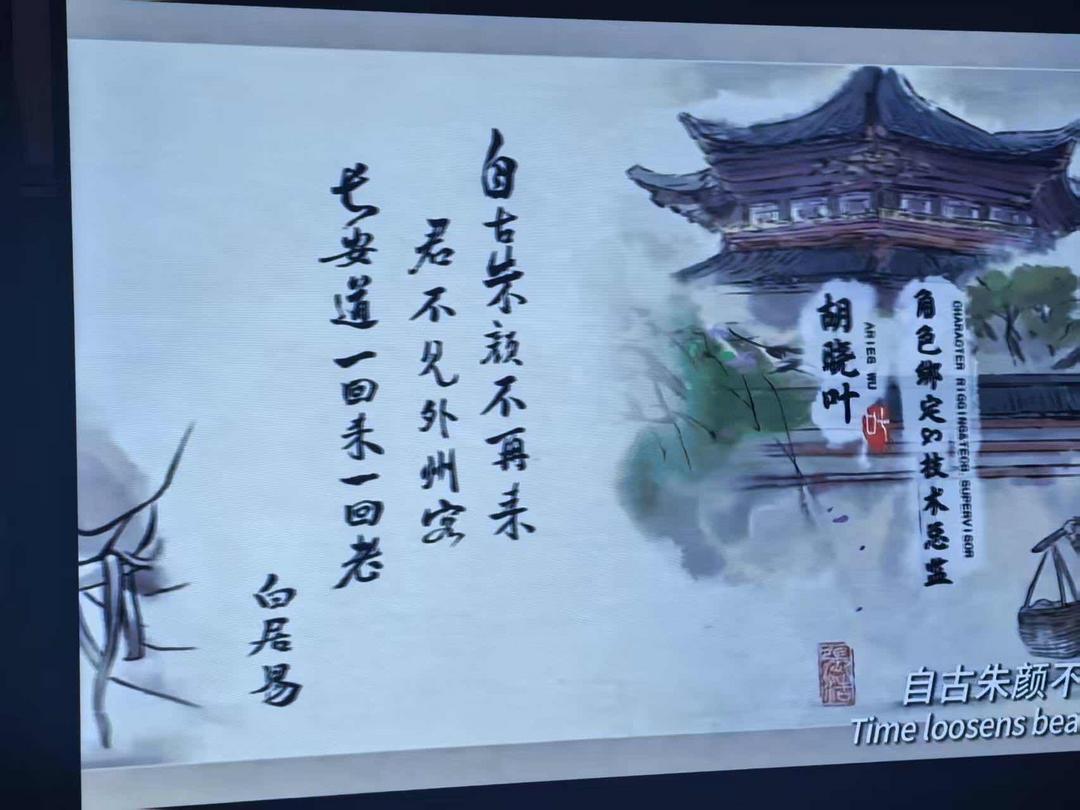 CHARACTER RIGGING&TECH. SUPERVISOR
角色绑定&技术总监
ARIES WU
胡晓叶
叶
自古朱颜不再来
君不见外州客
长安道一回来一回老
白居易
自古朱颜不
Time loosens bea